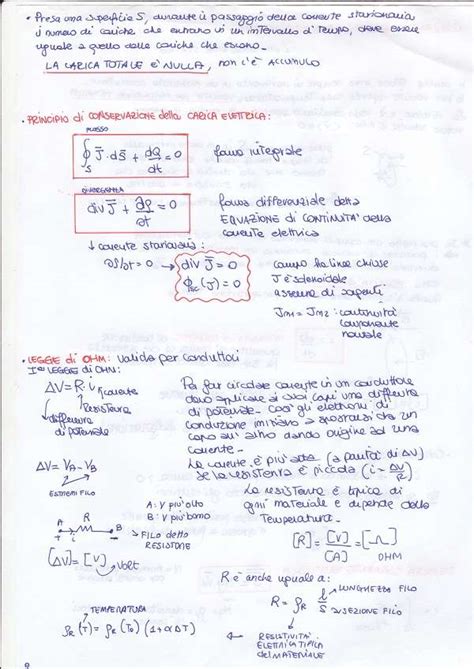 • Presa una superficie S, durante il passaggio della corrente stazionaria
il numero di cariche che entrano in un intervallo di tempo, deve essere
uguale a quello delle cariche che escono.
LA CARICA TOTALE E' NULLA, non c'è ACCUMULO
• PRINCIPIO di CONSERVAZIONE della CARICA ELETTRICA:
FLUSSO
∮S J̅·dS̅ + dQ/dt = 0 forma integrale
DIVERGENZA
div J̅ + ∂ρ/∂t = 0 forma differenziale della
EQUAZIONE di CONTINUITA' della
corrente elettrica
↓ corrente stazionaria:
∂ρ/∂t = 0 → div J̅ = 0 campo ha linee chiuse
(J) = 0 J è solenoidale
assenza di sorgenti
Jm1 = Jm2 : continuità
componente
normale
• LEGGE di OHM: valida per conduttori
Iª LEGGE di OHM:
ΔV = R·i corrente
Resistenza
differenza
di potenziale
Per far circolare corrente in un conduttore
devo applicare ai suoi capi una differenza
di potenziale. Così gli elettroni di
conduzione iniziano a spostarsi da un
capo all'altro dando origine ad una
corrente.
La corrente è più alta (a parità di ΔV)
se la resistenza è piccola (i = ΔV/R)
ΔV = VA - VB
ESTREMI FILO
La resistenza è tipica di
ogni materiale e dipende dalla
Temperatura.
A: V più alto
B: V più basso
A i B
FILO detto
RESISTORE
[R] = [V]/[A] = [Ω]
OHM
[ΔV] = [V] Volt
R è anche uguale a:
R = ρR l/S LUNGHEZZA FILO
SEZIONE FILO
TEMPERATURA
ρR(T) = ρR(T0) (1+αΔT)
RESISTIVITA'
ELETTRICA TIPICA
del MATERIALE
9